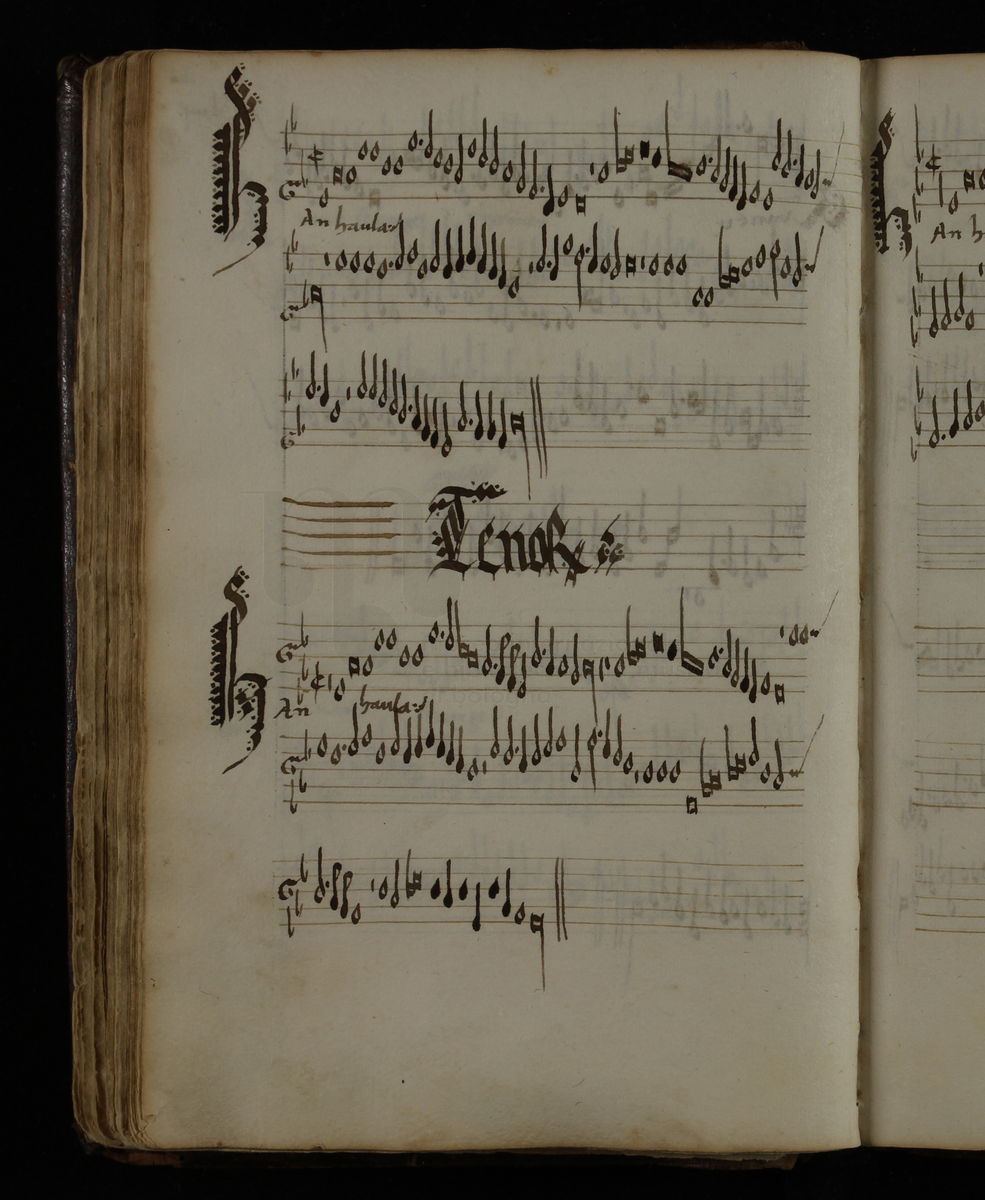 hAn haulas
Tenor
hAn haulas
hAn h